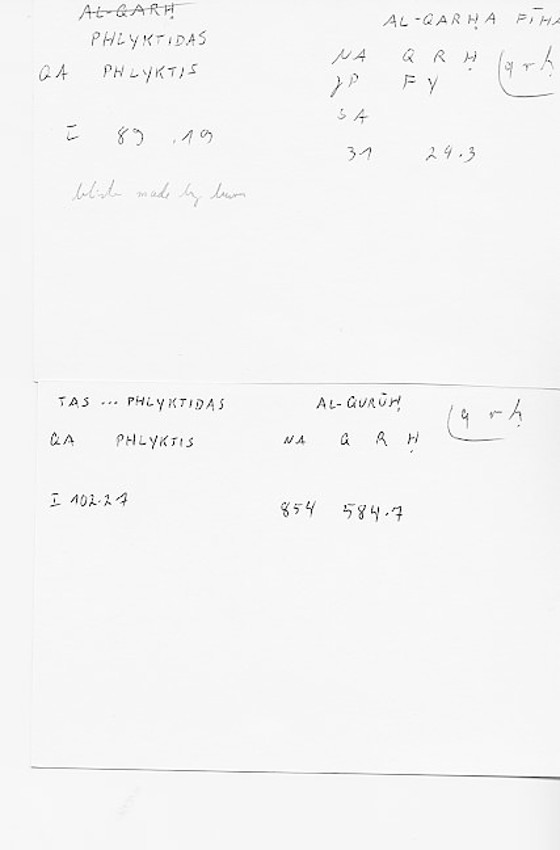 AL-QARḤ
PHLYKTIDAS
QA PHLYKTIS
I 89 .19
made by
AL-QARḤA FĪHA
NA Q R Ḥ (q r ḥ
JP F Y
SA
31 24.3
TAS ... PHLYKTIDAS
QA PHLYKTIS
I 102.27
AL-QURŪḤ (q r ḥ
NA Q R Ḥ
854 584.7